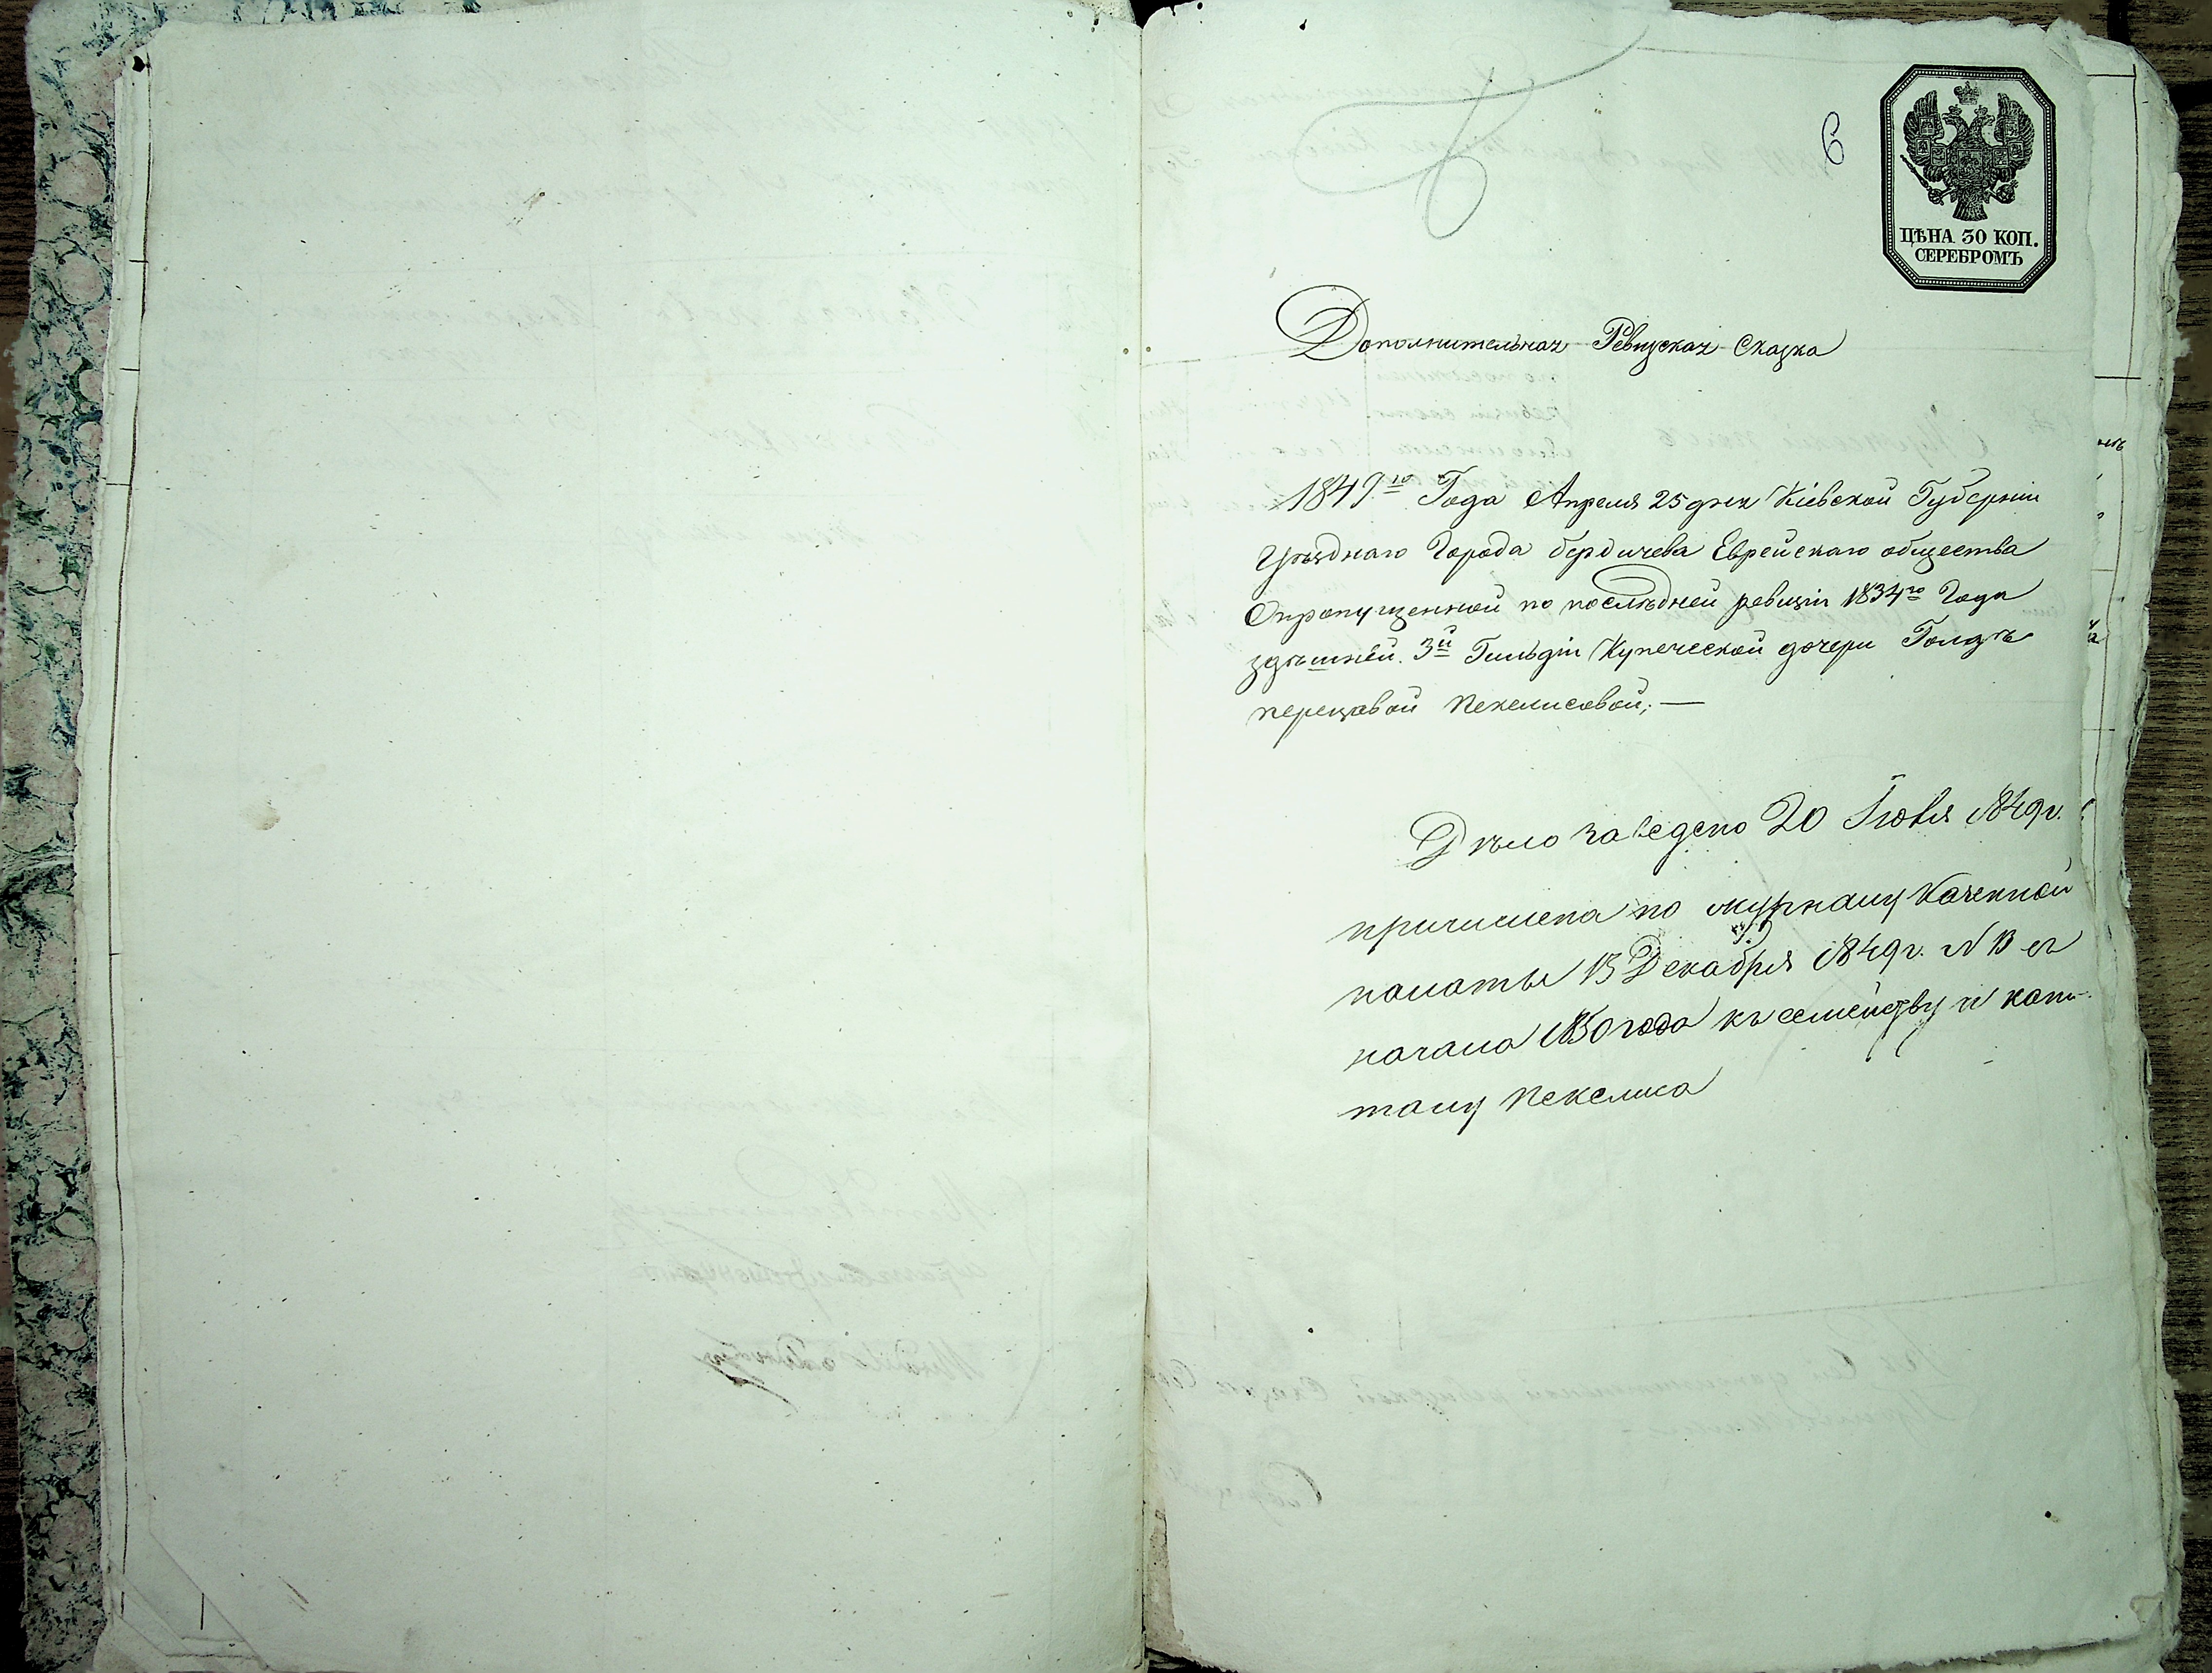 6
ЦѢНА 30 КОП.
СЕРЕБРОМЪ
Дополнительная Ревизская Сказка
1849го Года Апреля 25 дня Кіевской Губерніи
Уѣзднаго Города бердичева Еврейскаго общества
О пропущенной по послѣдней ревизіи 1834го Года
здѣшней 3й Гильдіи Купеческой дочери Голдѣ
перецовой Пекелисовой; —
Дѣло заведено 20 Іюля 1849г.
причислена по журналу Казенной
палаты 13 Декабря 1849г. съ
начала 1850 года къ семейству и капи-
талу Пекелиса